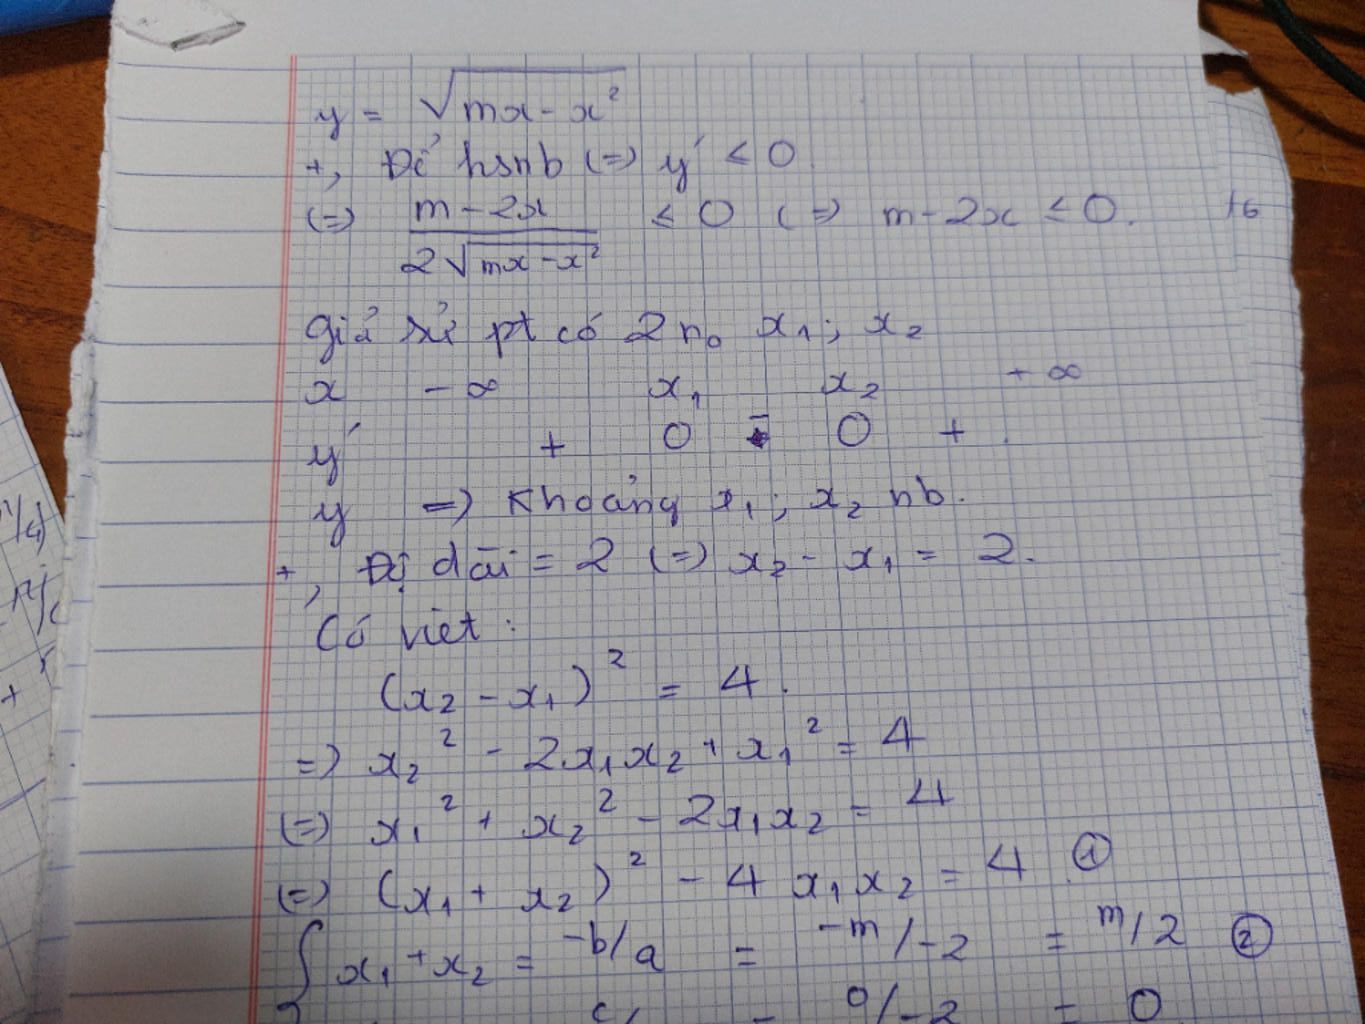 y = √(mx - x²)
+, Để hsnb (=) y' ≤ 0
(=) (m - 2x)/(2√(mx - x²)) ≤ 0 (=) m - 2x ≤ 0.
giả sử pt có 2 n₀ x₁ ; x₂
x - ∞ x₁ x₂ + ∞
y' + 0 - 0 +
y => Khoảng x₁ ; x₂ nb.
+, Độ dài = 2 (=) x₂ - x₁ = 2.
Có viet :
(x₂ - x₁)² = 4.
=> x₂² - 2x₁x₂ + x₁² = 4
(=) x₁² + x₂² - 2x₁x₂ = 4
(=) (x₁ + x₂)² - 4 x₁x₂ = 4 ①
{ x₁ + x₂ = -b/a = -m/-2 = m/2 ②
c/ = 0/-2 = 0